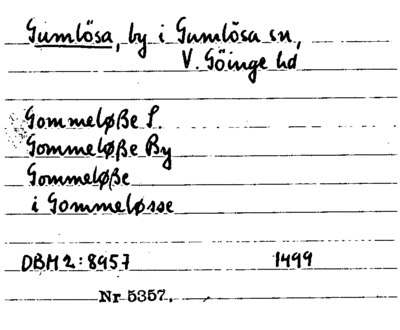 Gumlösa, by i Gumlösa sn,
V. Göinge hd
Gommeløße S.
Gommeløße By
Gommeløße
i Gommeløsse
DBM 2:8957 1499
Nr 5357.